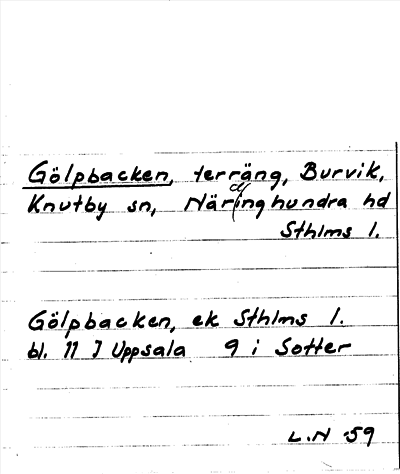 Gölpbacken, terräng, Burvik,
Knutby sn, Närdinghundra hd
Sthlms l.
Gölpbacken, ek Sthlms l.
bl. 11 I Uppsala 9 i Sotter
L.N -59